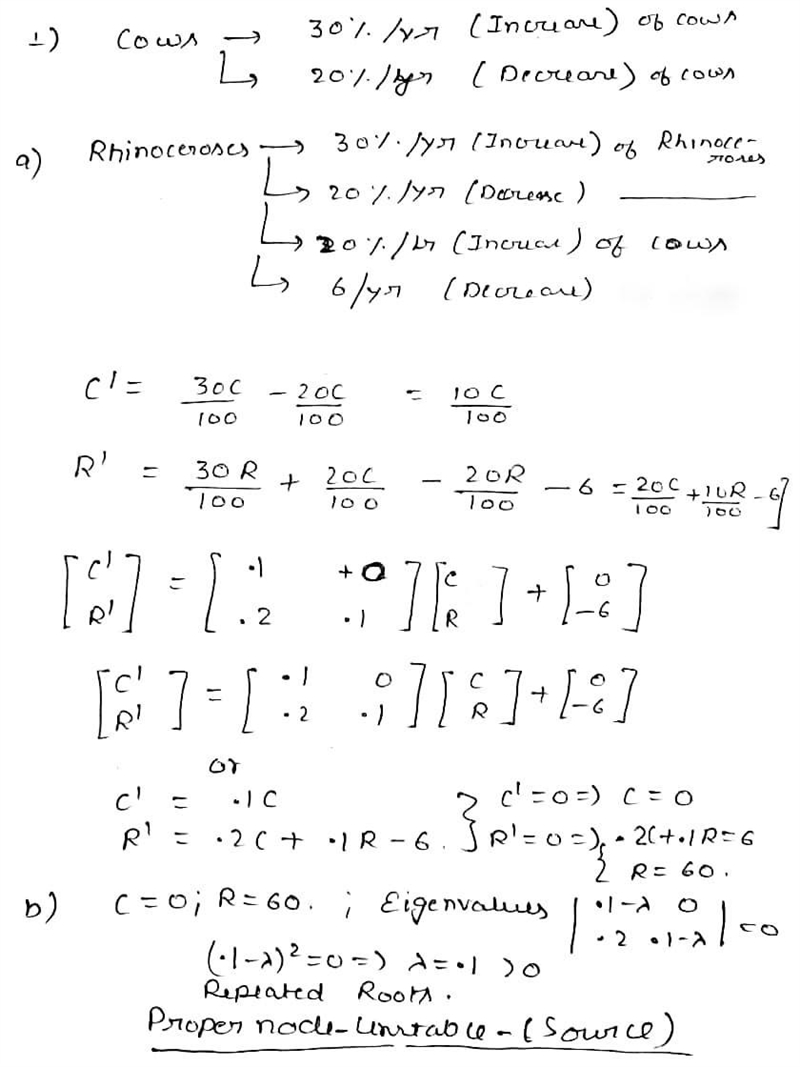 1) Cows → 30% /yr (Increase) of cows
↳ 20% /yr (Decrease) of cows
a) Rhinoceroses → 30% /yr (Increase) of Rhinoceroses
↳ 20 % /yr (Decrease)
↳ 20% /yr (Increase) of cows
↳ 6/yr (Decrease)
C' = 30C/100 - 20C/100 = 10C/100
R' = 30R/100 + 20C/100 - 20R/100 - 6 = 20C/100 + 10R/100 - 6]
[C' R'] = [.1 +0 .2 .1] [C R] + [0 -6]
[C' R'] = [.1 0 .2 .1] [C R] + [0 -6]
or
C' = .1C } C' = 0 => C = 0
R' = .2C + .1R - 6. } R' = 0 => { .2C+.1R=6
R = 60.
b) C = 0; R = 60. ; Eigenvalues |.1-λ 0 .2 .1-λ| = 0
(.1-λ)² = 0 => λ = .1 > 0
Repeated Roots.
Proper node-Unstable-(Source)